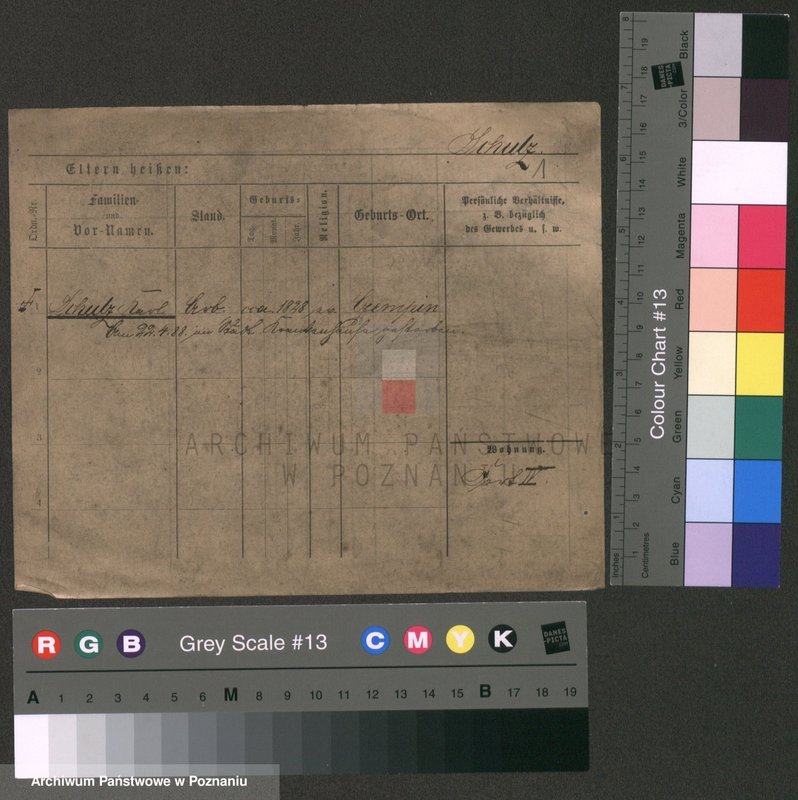 Schulz.
1
Eltern heißen:
Ordn.-Nr.
Familien-
und
Vor-Namen.
Stand.
Geburts-
Tag.
Monat.
Jahr.
Religion.
Geburts-Ort.
Persönliche Verhältnisse,
z. B. bezüglich
des Gewerbes u. s. w.
1
Schulz Karl Arb. 1828 Czempin
Am 22.4.88. im Städt. Krankenhause gestorben.
2
3
4
Wohnung.
Fort IV.
ARCHIWUM PAŃSTWOWE
W POZNANIU
Archiwum Państwowe w Poznaniu
R G B Grey Scale #13 C M Y K
DANES
-PICTA
.COM
A 1 2 3 4 5 6 M 8 9 10 11 12 13 14 15 B 17 18 19
Colour Chart #13
Black
3/Color
White
Magenta
Red
Yellow
Green
Cyan
Blue
Inches
1 2 3 4 5 6 7 8
Centimetres
1 2 3 4 5 6 7 8 9 10 11 12 13 14 15 16 17 18 19
DANES
-PICTA
.COM